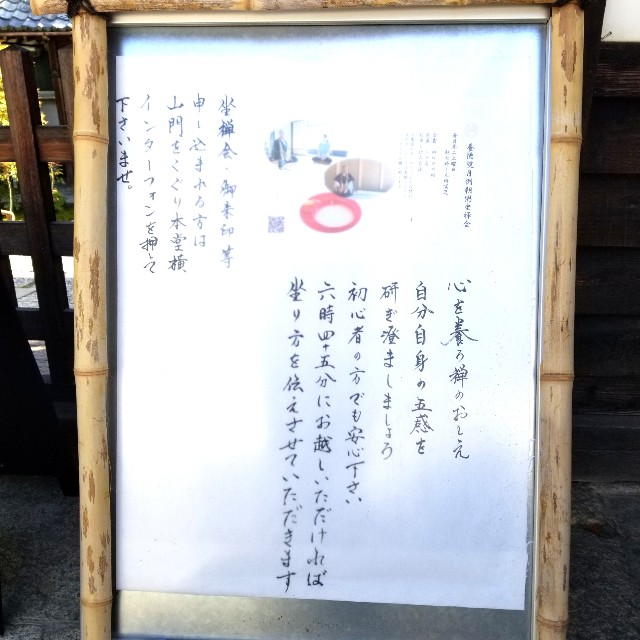 心を養う禅のおしえ
自分自身の五感を
研ぎ澄ましましょう
初心者の方でも安心下さい
六時四十五分にお越しいただければ
坐り方を伝えさせていただきます
坐禅会・御朱印等
申し込まれる方は
山門をくぐり本堂横
インターフォンを押して
下さいませ。